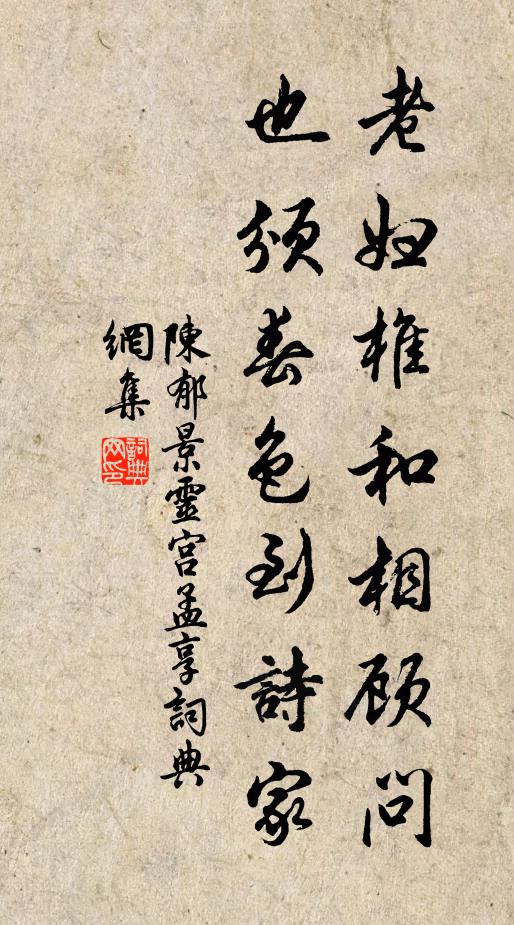 老妇椎和相顾問
也頒春色到詩家
陳郁景靈宮孟享詞典
網集
詞典
网印